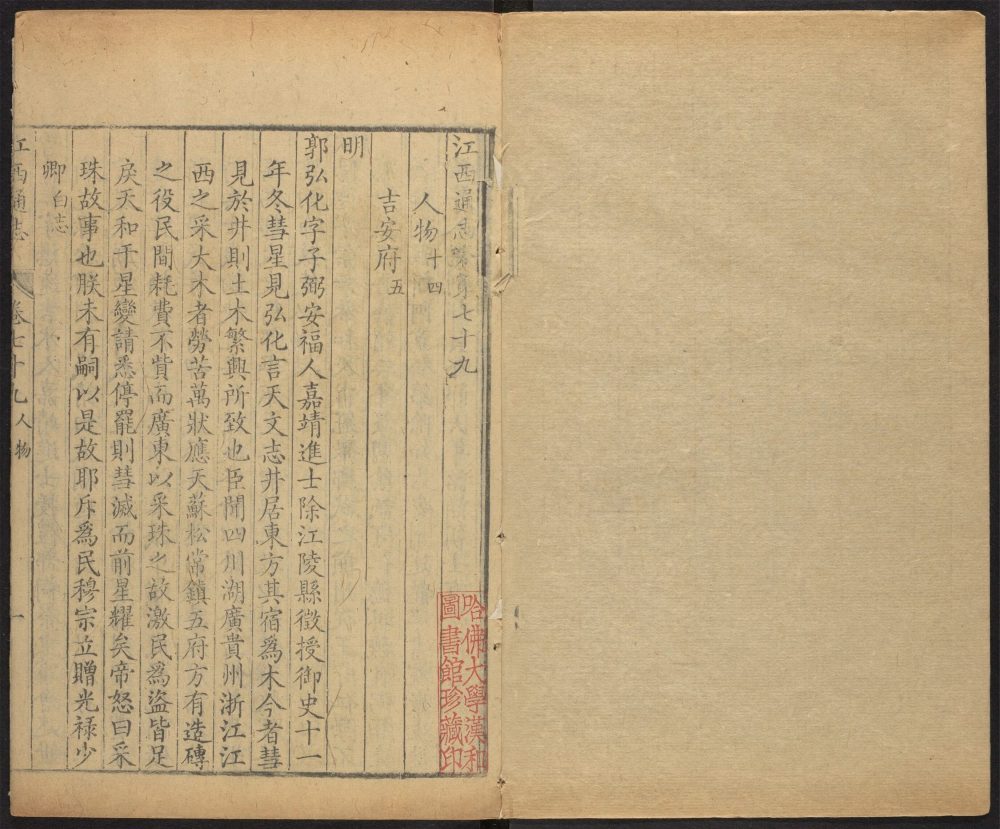 江西通志卷第七十九
人物十四
吉安府五
明
郭弘化字子弼安福人嘉靖進士除江陵縣徵授御史十一
年冬彗星見弘化言天文志井居東方其宿爲木今者彗
見於井則土木繁興所致也臣聞四川湖廣貴州浙江江
西之采大木者勞苦萬狀應天蘇松常鎮五府方有造磚
之役民間耗費不貲而廣東以采珠之故激民爲盜皆足
戾天和干星變請悉停罷則彗滅而前星耀矣帝怒曰采
珠故事也朕未有嗣以是故耶斥爲民穆宗立贈光禄少
卿白志
江西通志 卷七十九人物 一
哈佛大學漢和
圖書館珍藏印